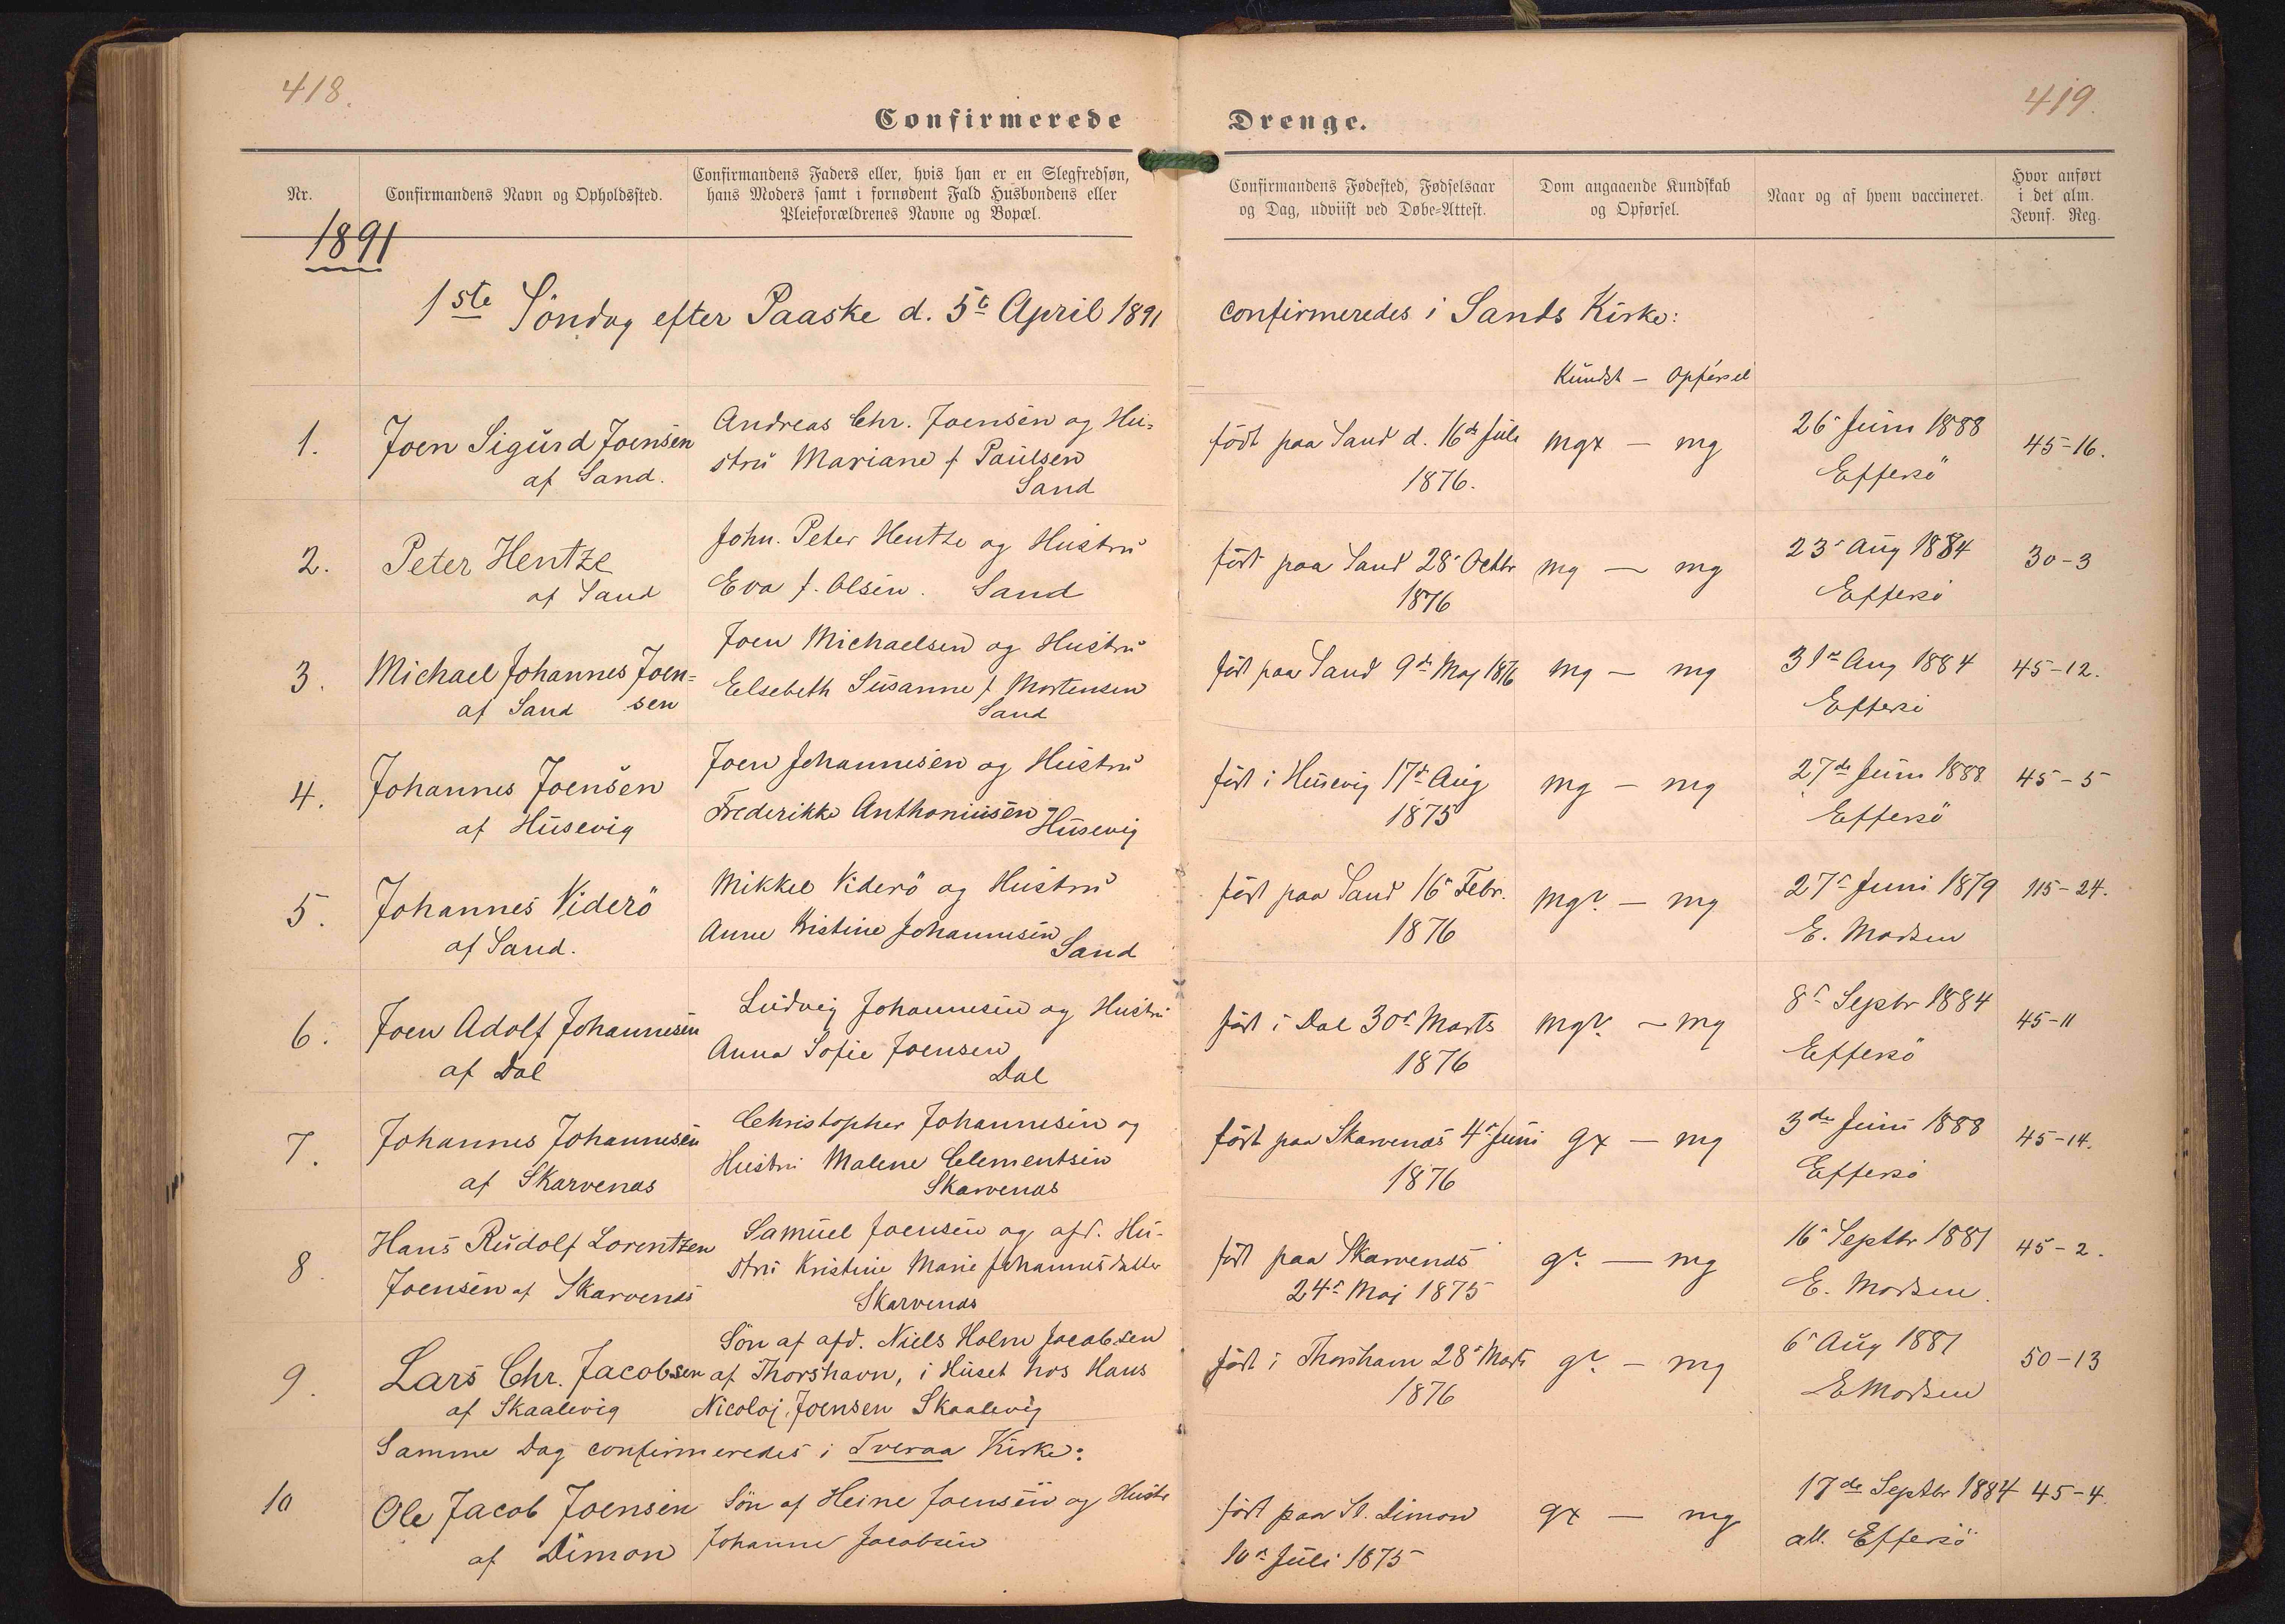 418.
419.
Confirmerede Drenge.
Nr.
Confirmandens Navn og Opholdssted.
Confirmandens Faders eller, hvis han er en Slegfredsøn,
hans Moders samt i fornødent Fald Husbondens eller
Pleieforældrenes Navne og Bopæl.
Confirmandens Fødested, Fødselsaar
og Dag, udviist ved Døbe-Attest.
Dom angaaende Kundskab
og Opførsel.
Naar og af hvem vaccineret.
Hvor anført
i det alm.
Jevnf. Reg.
1891
1ste Søndag efter Paaske d. 5t April 1891 confirmeredes i Sands Kirke:
Kundsk — Opførsel
1.
Joen Sigurd Joensen
af Sand.
Andreas Chr. Joensen og Hu-
stru Mariane f Paulsen
Sand
født paa Sand d. 16de Juli
1876.
mgx — mg
26 Juni 1888
Effersö
45-16.
2.
Peter Hentze
af Sand
John. Peter Hentze og Hustru
Eva f. Olsen. Sand
født paa Sand 28 Octbr
1876
mg — mg
23 Aug 1884
Effersö
30-3
3.
Michael Johannes Joen-
af Sand sen
Joen Michaelsen og Hustru
Elsebeth Susanne f Mortensen
Sand
født paa Sand 9de Maj 1876
mg — mg
31te Aug 1884
Effersö
45-12.
4.
Johannes Joensen
af Husevig
Joen Johannesen og Hustru
Frederikke Anthoniusen
Husevig
født i Husevig 17de Aug
1875
mg — mg
27de Juni 1888
Effersö
45-5
5.
Johannes Viderö
af Sand.
Mikkel Viderö og Hustru
Anne Kristine Johannesen
Sand
født paa Sand 16 Febr.
1876
mg? — mg
27 Juni 1879
E. Madsen
115-24.
6.
Joen Adolf Johannesen
af Dal
Ludvig Johannesen og Hustru
Anna Sofie Joensen
Dal
født i Dal 30 Marts
1876
mg? — mg
8 Septbr 1884
Effersö
45-11
7.
Johannes Johannesen
af Skarvenæs
Christopher Johannesen og
Hustru Malene Clementsen
Skarvenæs
født paa Skarvenæs 4 Juni
1876
gx — mg
3de Juni 1888
Effersö
45-14.
8.
Hans Rudolf Lorentzen
Joensen af Skarvenæs
Samuel Joensen og afd. Hu-
stru Kristine Marie Johannesdatter
Skarvenæs
født paa Skarvenæs
24 Maj 1875
g? — mg
16 Septbr 1881
E. Madsen.
45-2.
9.
Lars Chr. Jacobsen
af Skaalevig
Søn af afd. Niels Holm Jacobsen
af Thorshavn, i Huset hos Hans
Nicolaj Joensen Skaalevig
født i Thorshavn 28 Marts
1876
g? — mg
6 Aug 1881
E Madsen
50-13
Samme Dag confirmeredes i Tveraa Kirke:
10
Ole Jacob Joensen
af Dimon
Søn af Heine Joensen og Hustr
Johanne Jacobsen
født paa St. Dimon
10 Juli 1875
gx — mg
17de Septbr 1884
att. Effersö
45-4.